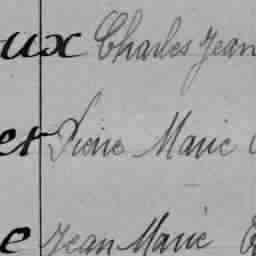 ux Charles Jean
er Pierre Marie
e Jean Marie